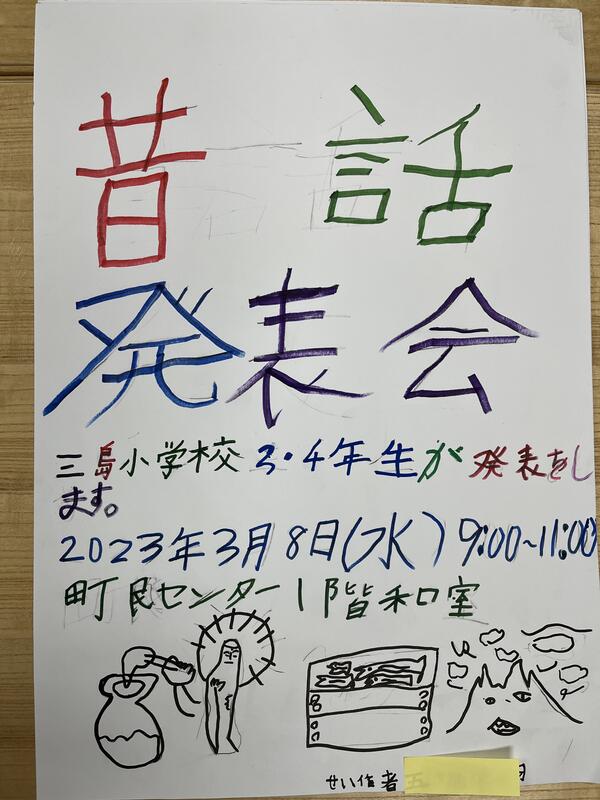 昔話
発表会
三島小学校3・4年生が発表をし
ます。
2023年3月8日(水)9:00~11:00
町民センター1階和室
せい作者